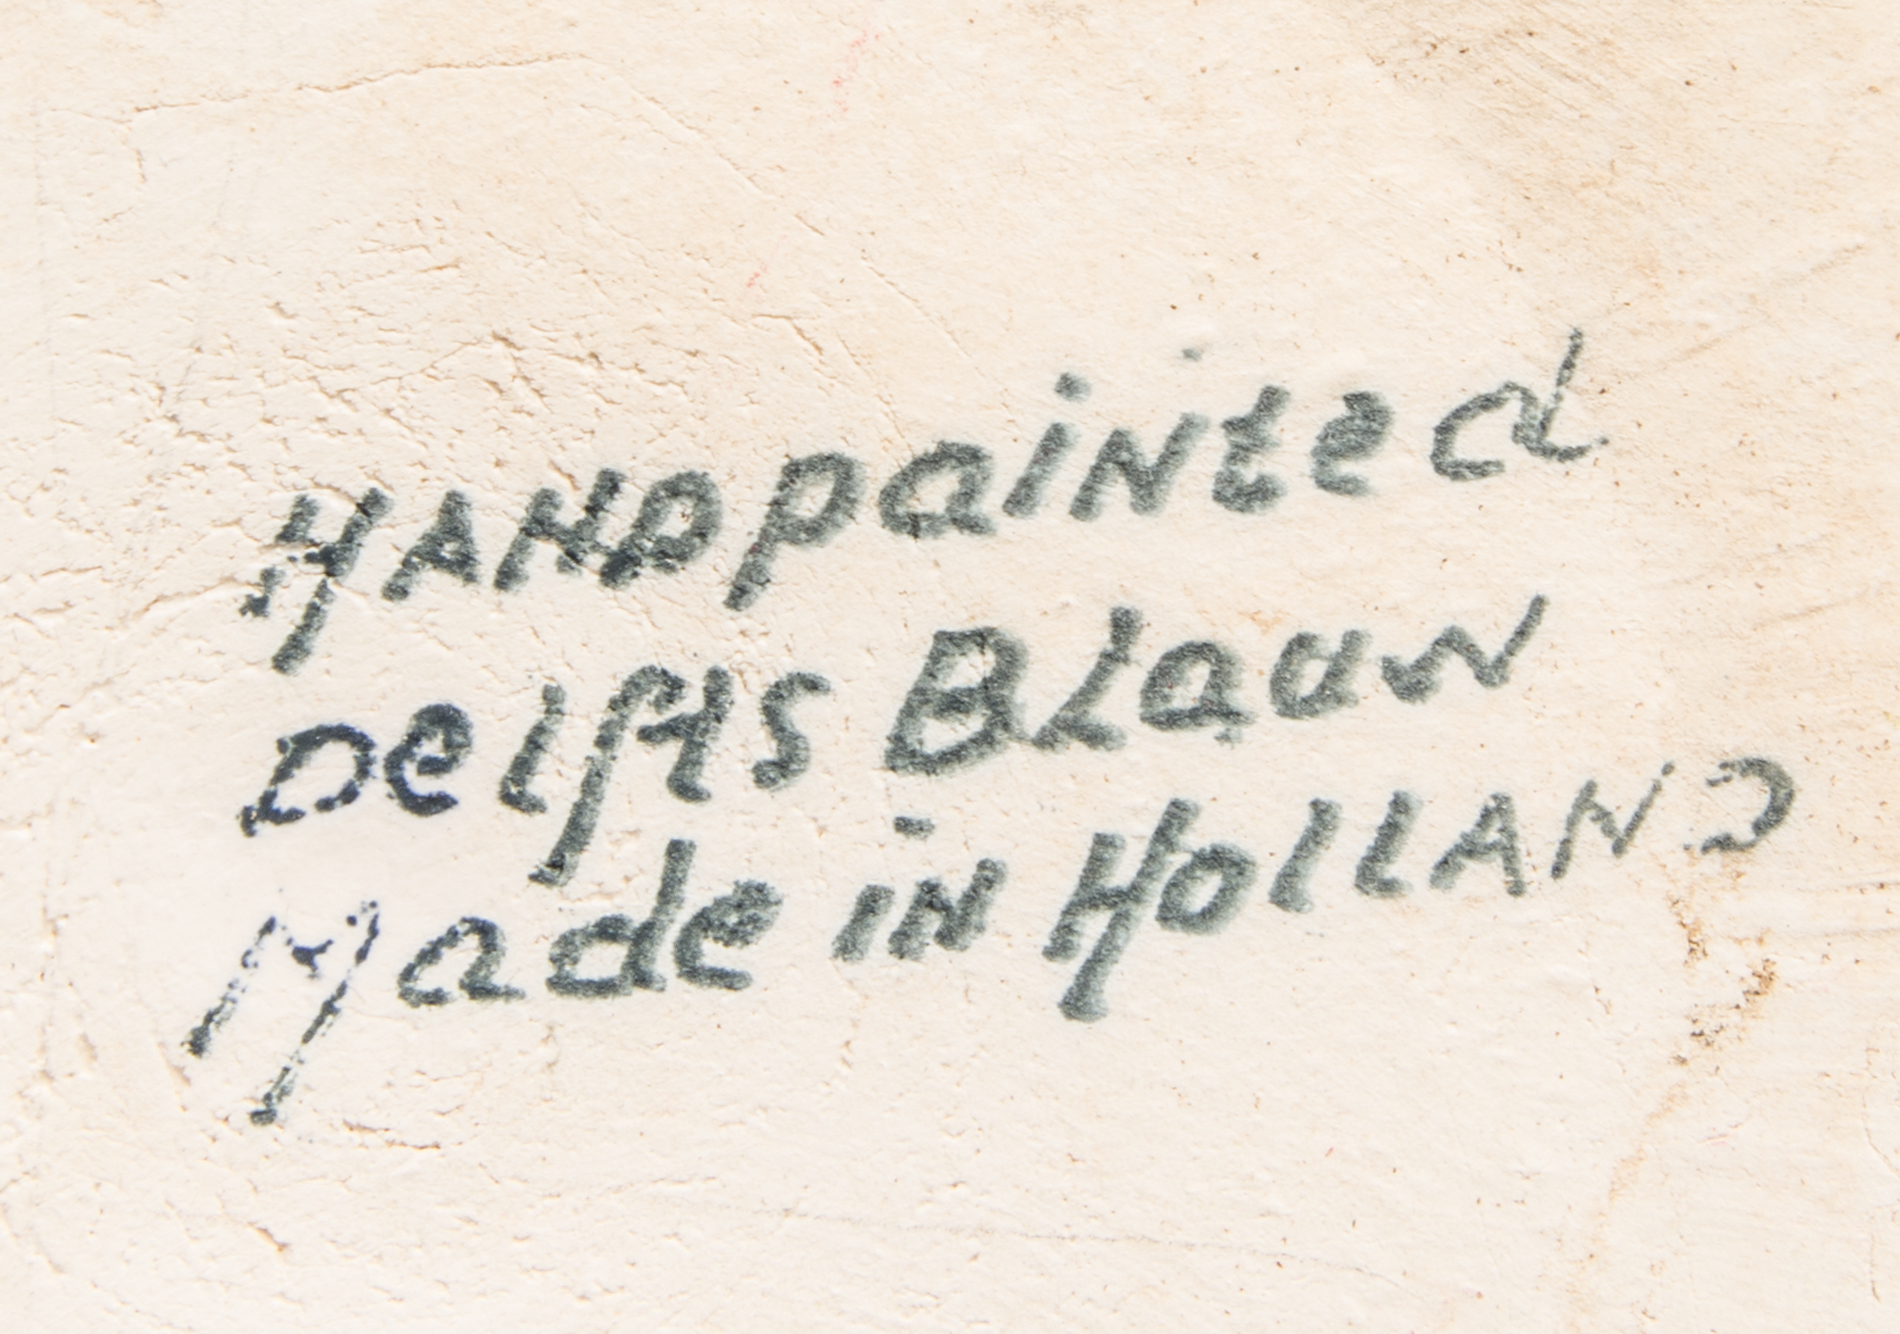 HANDpainted
Delfts Blauw
Made in HOLLAND